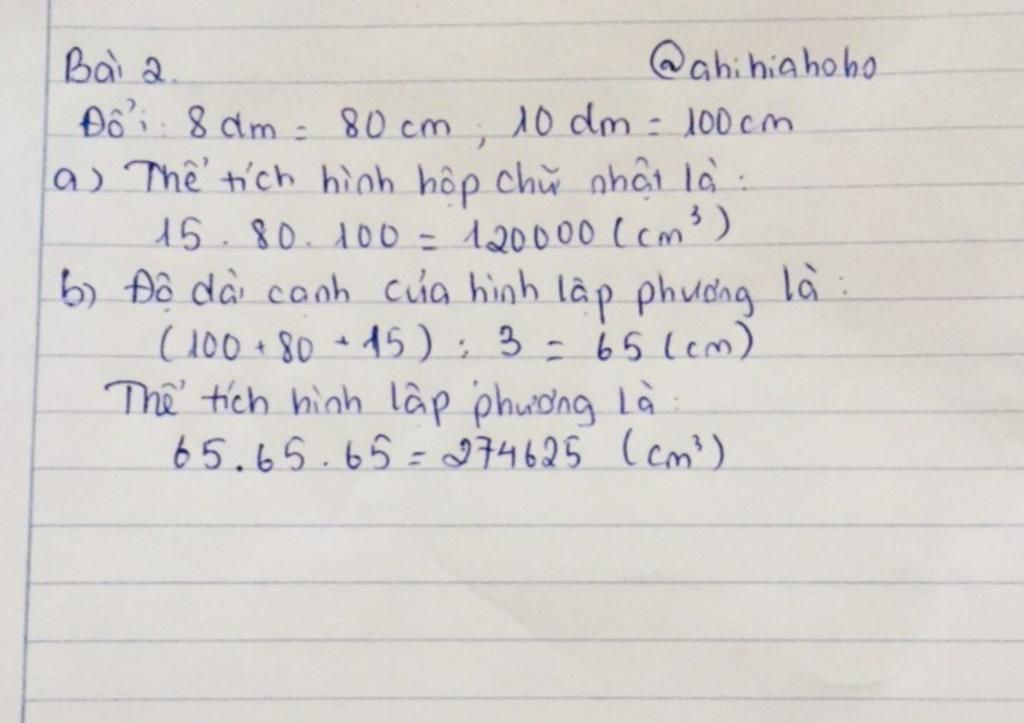 Bài 2. @ahihiahoho
Đổi: 8 dm = 80 cm ; 10 dm = 100 cm
a) Thể tích hình hộp chữ nhật là:
15 . 80 . 100 = 120000 (cm³)
b) Độ dài canh của hình lập phương là:
(100 + 80 + 15) : 3 = 65 (cm)
Thể tích hình lập phương là:
65 . 65 . 65 = 274625 (cm³)